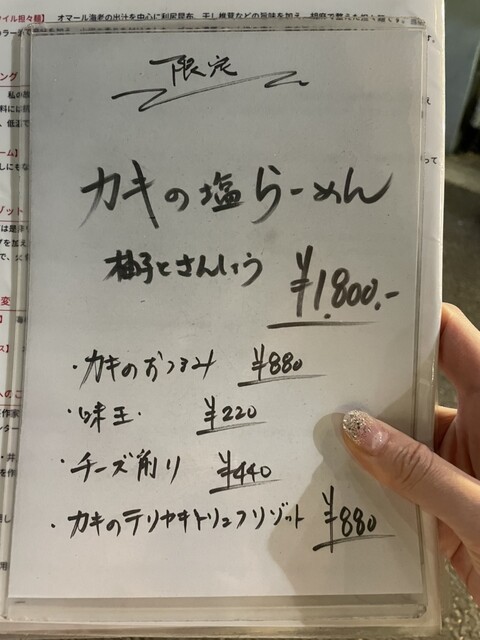 イル担々麺】 オマール海老の出汁を中心に利尻昆布、干し椎茸などの旨味を加え、胡麻で整えた担々麺です。
限定
カキの塩らーめん
柚子とさんしょう ¥1,800.-
・カキのおつまみ ¥880
・味玉. ¥220
・チーズ削り ¥440
・カキのテリヤキトリュフリゾット ¥880